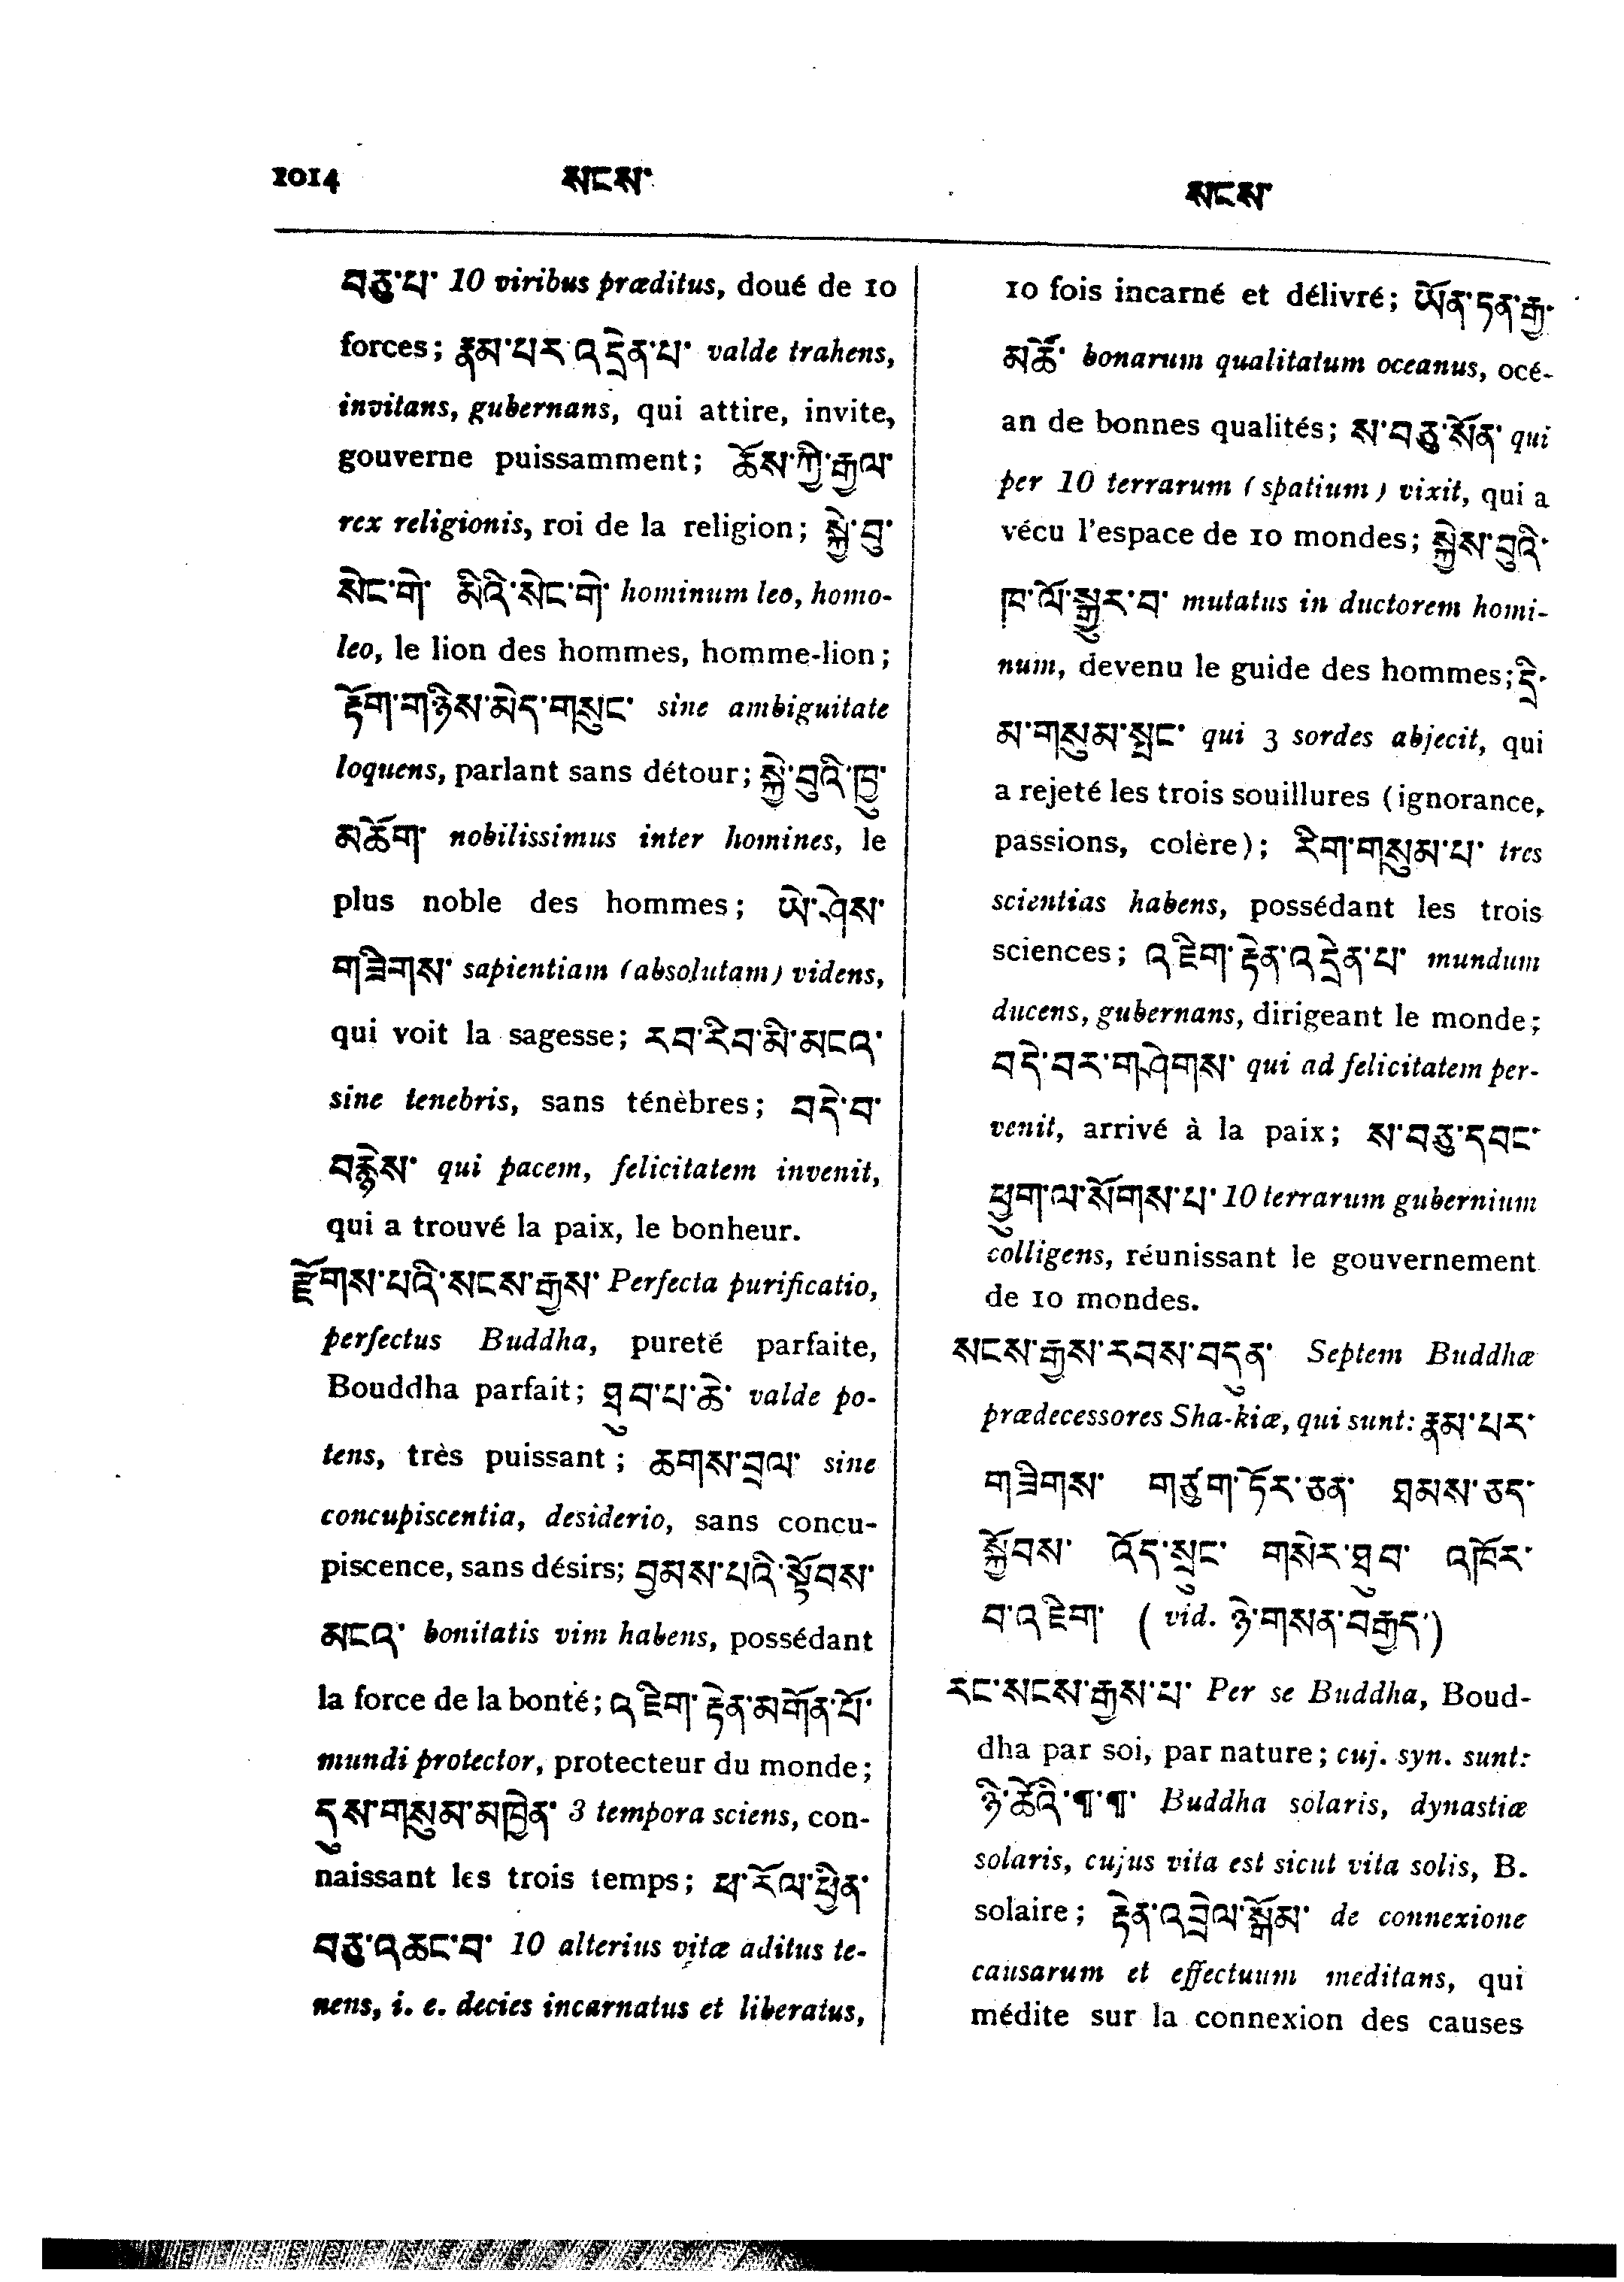 1014 སངས་ སངས་
བཅུ་པ་ 10 viribus præditus, doué de 10
forces; རྣམ་པར་འདྲེན་པ་ valde trahens,
invitans, gubernans, qui attire, invite,
gouverne puissamment; ཆོས་ཀྱི་རྒྱལ་
rex religionis, roi de la religion; སྐྱེ་བུ་
སེང་གེ་ མིའི་སེང་གེ་ hominum leo, homo-
leo, le lion des hommes, homme-lion;
རྟོག་གཉིས་མེད་གསུང་ sine ambiguitate
loquens, parlant sans détour; སྐྱེ་བུའི་ཁྱུ་
མཆོག་ nobilissimus inter homines, le
plus noble des hommes; ཡེ་ཤེས་
གཟིགས་ sapientiam (absolutam) videns,
qui voit la sagesse; རབ་རིབ་མི་མངའ་
sine tenebris, sans ténèbres; བདེ་བ་
བརྙེས་ qui pacem, felicitatem invenit,
qui a trouvé la paix, le bonheur.
རྫོགས་པའི་སངས་རྒྱས་ Perfecta purificatio,
perfectus Buddha, pureté parfaite,
Bouddha parfait; ཐུབ་པ་ཆེ་ valde po-
tens, très puissant; ཆགས་བྲལ་ sine
concupiscentia, desiderio, sans concu-
piscence, sans désirs; བྱམས་པའི་སྟོབས་
མངའ་ bonitatis vim habens, possédant
la force de la bonté; འཇིག་རྟེན་མགོན་པོ་
mundi protector, protecteur du monde;
དུས་གསུམ་མཁྱེན་ 3 tempora sciens, con-
naissant les trois temps; ཕ་རོལ་ཕྱིན་
བཅུ་འཆང་བ་ 10 alterius vitæ aditus te-
nens, i. e. decies incarnatus et liberatus,
10 fois incarné et délivré; ཡོན་ཏན་རྒྱ་
མཚོ་ bonarum qualitatum oceanus, océ-
an de bonnes qualités; ས་བཅུ་སོན་ qui
per 10 terrarum (spatium) vixit, qui a
vécu l'espace de 10 mondes; སྐྱེས་བུའི་
ཁ་ལོ་སྒྱུར་བ་ mutatus in ductorem homi-
num, devenu le guide des hommes; དྲི་
མ་གསུམ་སྤང་ qui 3 sordes abjecit, qui
a rejeté les trois souillures (ignorance,
passions, colère); རིག་གསུམ་པ་ tres
scientias habens, possédant les trois
sciences; འཇིག་རྟེན་འདྲེན་པ་ mundum
ducens, gubernans, dirigeant le monde;
བདེ་བར་གཤེགས་ qui ad felicitatem per-
venit, arrivé à la paix; ས་བཅུ་དབང་
ཕྱུག་ལ་སོགས་པ་ 10 terrarum gubernium
colligens, réunissant le gouvernement
de 10 mondes.
སངས་རྒྱས་རབས་བདུན་ Septem Buddhæ
prædecessores Sha-kiæ, qui sunt: རྣམ་པར་
གཟིགས་ གཙུག་ཏོར་ཅན་ ཐམས་ཅད་
སྐྱོབས་ འོད་སྲུང་ གསེར་ཐུབ་ འཁོར་
བ་འཇིག་ (vid. ཉེ་གསན་བརྒྱད་)
རང་སངས་རྒྱས་པ་ Per se Buddha, Boud-
dha par soi, par nature; cuj. syn. sunt:
ཉི་ཚེའི་¶་¶་ Buddha solaris, dynastiæ
solaris, cujus vita est sicut vita solis, B.
solaire; རྟེན་འབྲེལ་སྒོམ་ de connexione
causarum et effectuum meditans, qui
médite sur la connexion des causes